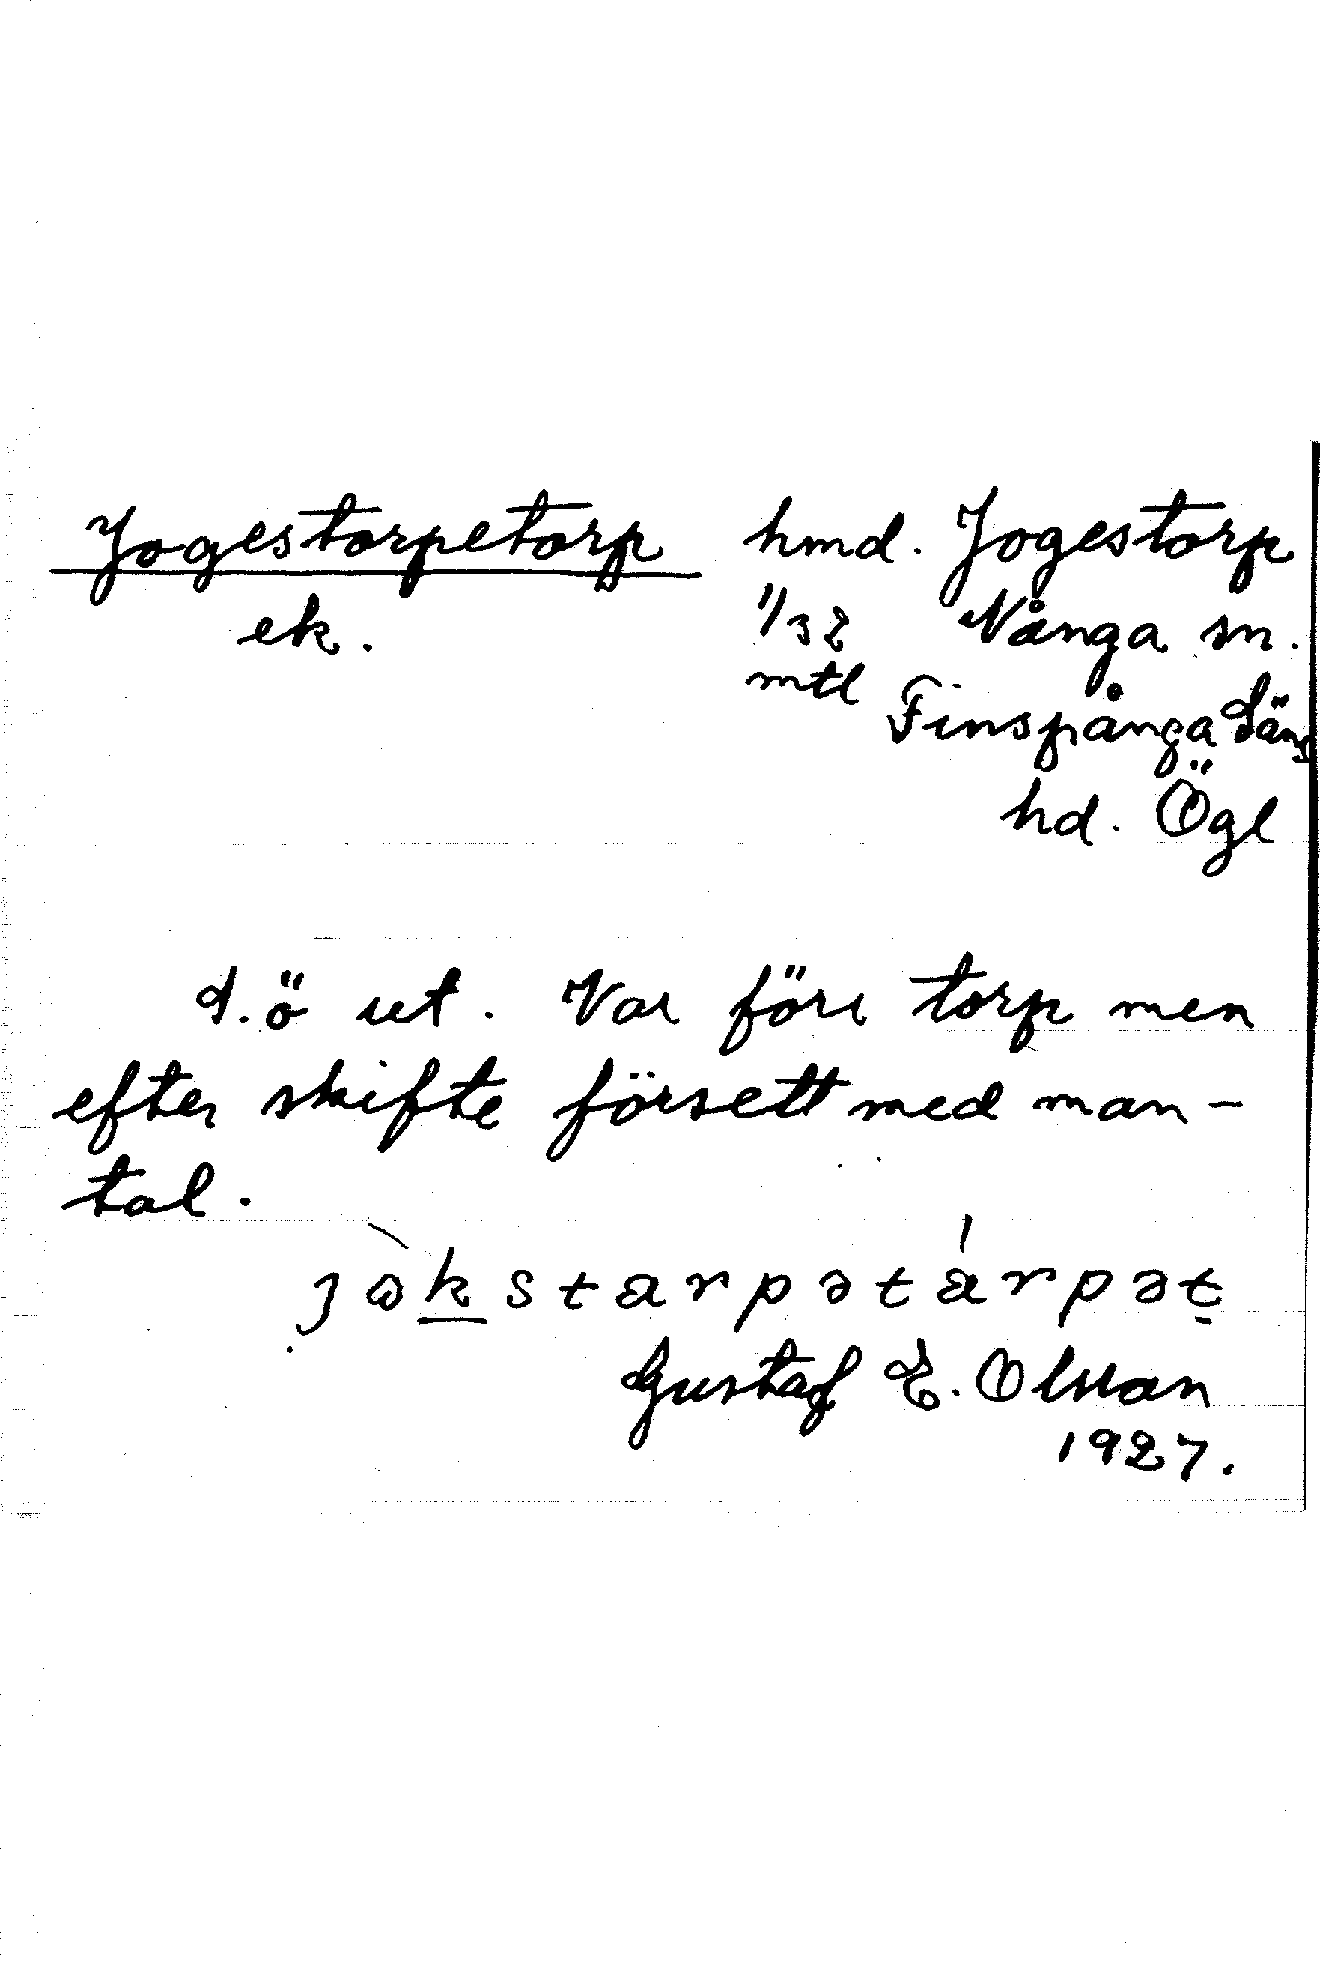 Jogestorpetorp hmd. Jogestorp
ek. 1/32 Vånga sn.
mtl Finspånga Läns
hd. Ögl
S.ö ut. Var förr torp men
efter skifte försett med man-
tal.
jɷkstarpətárpət
Gustaf E. Olsson
1927.